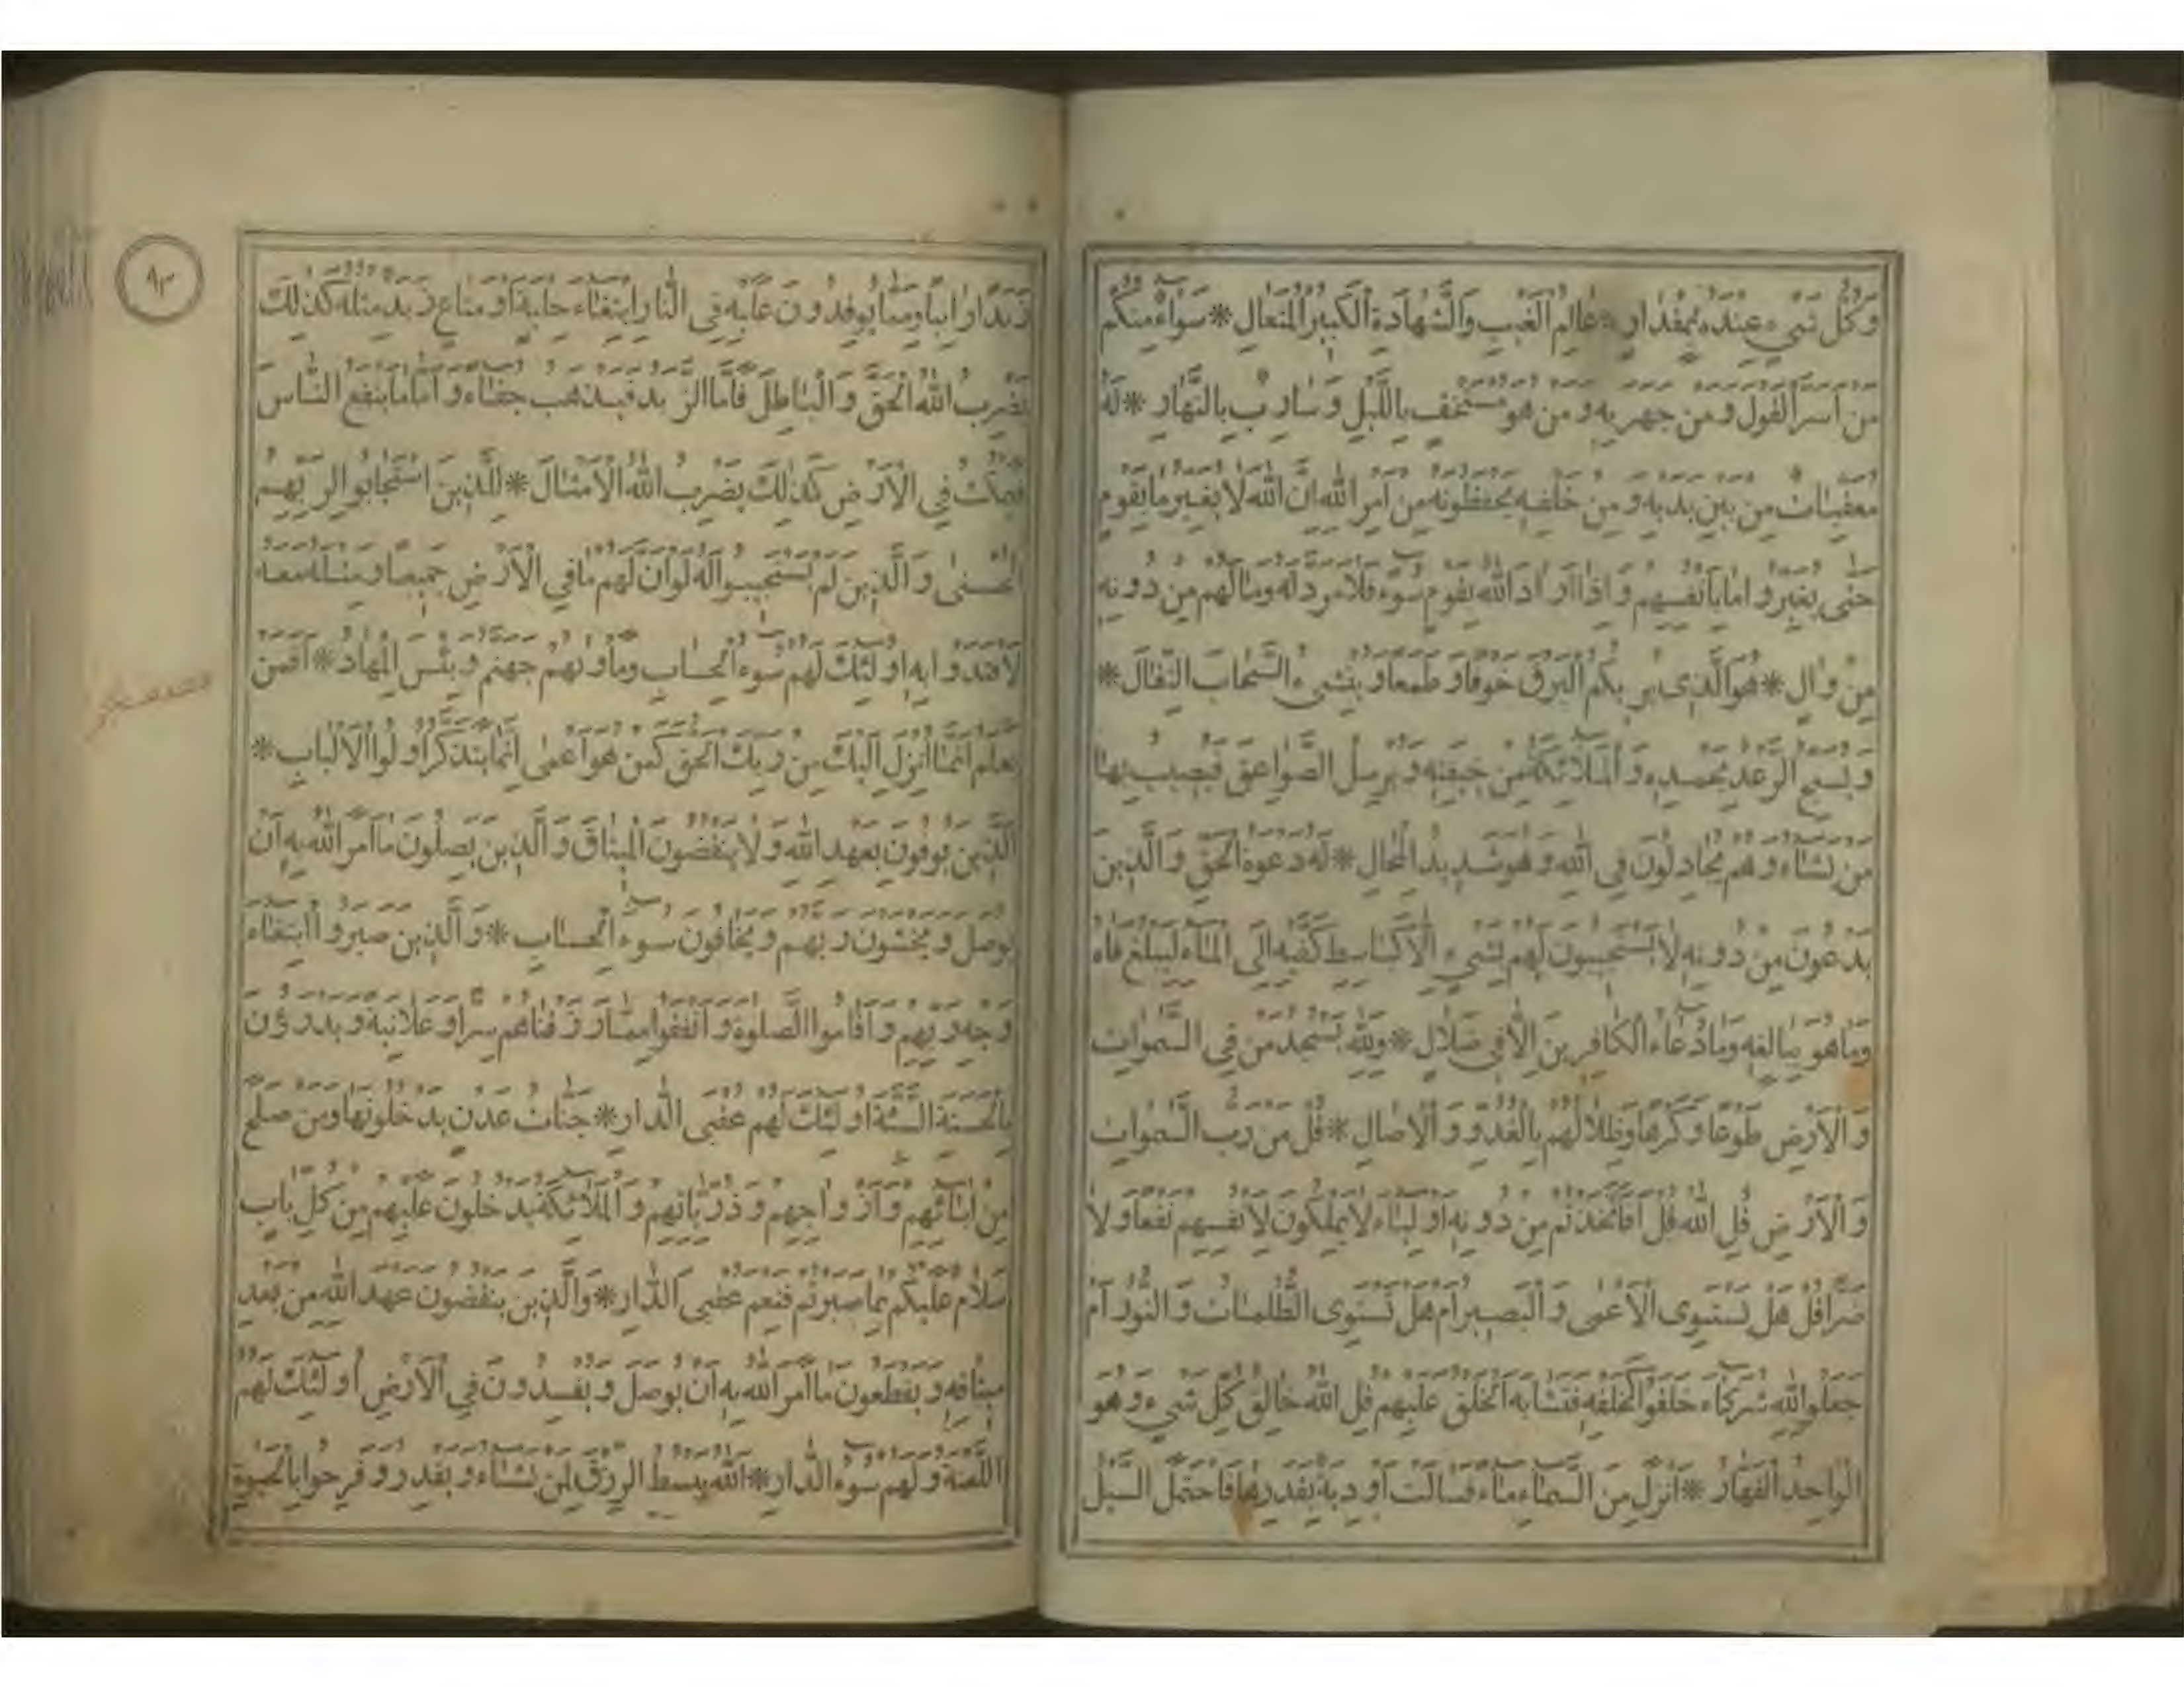 وَكُلُّ شَيْءٍ عِنْدَهُ بِمِقْدَارٍ * عَالِمُ الْغَيْبِ وَالشَّهَادَةِ الْكَبِيرُ الْمُتَعَالِ * سَوَاءٌ مِنْكُمْ
مَنْ أَسَرَّ الْقَوْلَ وَمَنْ جَهَرَ بِهِ وَمَنْ هُوَ مُسْتَخْفٍ بِاللَّيْلِ وَسَارِبٌ بِالنَّهَارِ * لَهُ
مُعَقِّبَاتٌ مِنْ بَيْنِ يَدَيْهِ وَمِنْ خَلْفِهِ يَحْفَظُونَهُ مِنْ أَمْرِ اللَّهِ إِنَّ اللَّهَ لَا يُغَيِّرُ مَا بِقَوْمٍ
حَتَّى يُغَيِّرُوا مَا بِأَنْفُسِهِمْ وَإِذَا أَرَادَ اللَّهُ بِقَوْمٍ سُوءً فَلَا مَرَدَّ لَهُ وَمَا لَهُمْ مِنْ دُونِهِ
مِنْ وَالٍ * هُوَ الَّذِي يُرِيكُمُ الْبَرْقَ خَوْفًا وَطَمَعًا وَيُنْشِئُ السَّحَابَ الثِّقَالَ *
وَيُسَبِّحُ الرَّعْدُ بِحَمْدِهِ وَالْمَلَائِكَةُ مِنْ خِيفَتِهِ وَيُرْسِلُ الصَّوَاعِقَ فَيُصِيبُ بِهَا
مَنْ يَشَاءُ وَهُمْ يُجَادِلُونَ فِي اللَّهِ وَهُوَ شَدِيدُ الْمِحَالِ * لَهُ دَعْوَةُ الْحَقِّ وَالَّذِينَ
يَدْعُونَ مِنْ دُونِهِ لَا يَسْتَجِيبُونَ لَهُمْ بِشَيْءٍ إِلَّا كَبَاسِطِ كَفَّيْهِ إِلَى الْمَاءِ لِيَبْلُغَ فَاهُ
وَمَا هُوَ بِبَالِغِهِ وَمَا دُعَاءُ الْكَافِرِينَ إِلَّا فِي ضَلَالٍ * وَلِلَّهِ يَسْجُدُ مَنْ فِي السَّمَوَاتِ
وَالْأَرْضِ طَوْعًا وَكَرْهًا وَظِلَالُهُمْ بِالْغُدُوِّ وَالْآصَالِ * قُلْ مَنْ رَبُّ السَّمَوَاتِ
وَالْأَرْضِ قُلِ اللَّهُ قُلْ أَفَاتَّخَذْتُمْ مِنْ دُونِهِ أَوْلِيَاءَ لَا يَمْلِكُونَ لِأَنْفُسِهِمْ نَفْعًا وَلَا
ضَرًّا قُلْ هَلْ يَسْتَوِي الْأَعْمَى وَالْبَصِيرُ أَمْ هَلْ تَسْتَوِي الظُّلُمَاتُ وَالنُّورُ أَمْ
جَعَلُوا لِلَّهِ شُرَكَاءَ خَلَقُوا كَخَلْقِهِ فَتَشَابَهَ الْخَلْقُ عَلَيْهِمْ قُلِ اللَّهُ خَالِقُ كُلِّ شَيْءٍ وَهُوَ
الْوَاحِدُ الْقَهَّارُ * أَنْزَلَ مِنَ السَّمَاءِ مَاءً فَسَالَتْ أَوْدِيَةٌ بِقَدَرِهَا فَاحْتَمَلَ السَّيْلُ
زَبَدًا رَابِيًا وَمِمَّا يُوقِدُونَ عَلَيْهِ فِي النَّارِ ابْتِغَاءَ حِلْيَةٍ أَوْ مَتَاعٍ زَبَدٌ مِثْلُهُ كَذَلِكَ
يَضْرِبُ اللَّهُ الْحَقَّ وَالْبَاطِلَ فَأَمَّا الزَّبَدُ فَيَذْهَبُ جُفَاءً وَأَمَّا مَا يَنْفَعُ النَّاسَ
فَيَمْكُثُ فِي الْأَرْضِ كَذَلِكَ يَضْرِبُ اللَّهُ الْأَمْثَالَ * لِلَّذِينَ اسْتَجَابُوا لِرَبِّهِمُ
الْحُسْنَى وَالَّذِينَ لَمْ يَسْتَجِيبُوا لَهُ لَوْ أَنَّ لَهُمْ مَا فِي الْأَرْضِ جَمِيعًا وَمِثْلَهُ مَعَهُ
لَافْتَدَوْا بِهِ أُولَئِكَ لَهُمْ سُوءُ الْحِسَابِ وَمَأْوَاهُمْ جَهَنَّمُ وَبِئْسَ الْمِهَادُ * أَفَمَنْ
يَعْلَمُ أَنَّمَا أُنْزِلَ إِلَيْكَ مِنْ رَبِّكَ الْحَقُّ كَمَنْ هُوَ أَعْمَى إِنَّمَا يَتَذَكَّرُ أُولُوا الْأَلْبَابِ *
الَّذِينَ يُوفُونَ بِعَهْدِ اللَّهِ وَلَا يَنْقُضُونَ الْمِيثَاقَ وَالَّذِينَ يَصِلُونَ مَا أَمَرَ اللَّهُ بِهِ أَنْ
يُوصَلَ وَيَخْشَوْنَ رَبَّهُمْ وَيَخَافُونَ سُوءَ الْحِسَابِ * وَالَّذِينَ صَبَرُوا ابْتِغَاءَ
وَجْهِ رَبِّهِمْ وَأَقَامُوا الصَّلَوةَ وَأَنْفَقُوا مِمَّا رَزَقْنَاهُمْ سِرًّا وَعَلَانِيَةً وَيَدْرَؤُنَ
بِالْحَسَنَةِ السَّيِّئَةَ أُولَئِكَ لَهُمْ عُقْبَى الدَّارِ * جَنَّاتُ عَدْنٍ يَدْخُلُونَهَا وَمَنْ صَلَحَ
مِنْ آبَائِهِمْ وَأَزْوَاجِهِمْ وَذُرِّيَّاتِهِمْ وَالْمَلَائِكَةُ يَدْخُلُونَ عَلَيْهِمْ مِنْ كُلِّ بَابٍ
سَلَامٌ عَلَيْكُمْ بِمَا صَبَرْتُمْ فَنِعْمَ عُقْبَى الدَّارِ * وَالَّذِينَ يَنْقُضُونَ عَهْدَ اللَّهِ مِنْ بَعْدِ
مِيثَاقِهِ وَيَقْطَعُونَ مَا أَمَرَ اللَّهُ بِهِ أَنْ يُوصَلَ وَيُفْسِدُونَ فِي الْأَرْضِ أُولَئِكَ لَهُمُ
اللَّعْنَةُ وَلَهُمْ سُوءُ الدَّارِ * اللَّهُ يَبْسُطُ الرِّزْقَ لِمَنْ يَشَاءُ وَيَقْدِرُ وَفَرِحُوا بِالْحَيَوةِ
٩٣